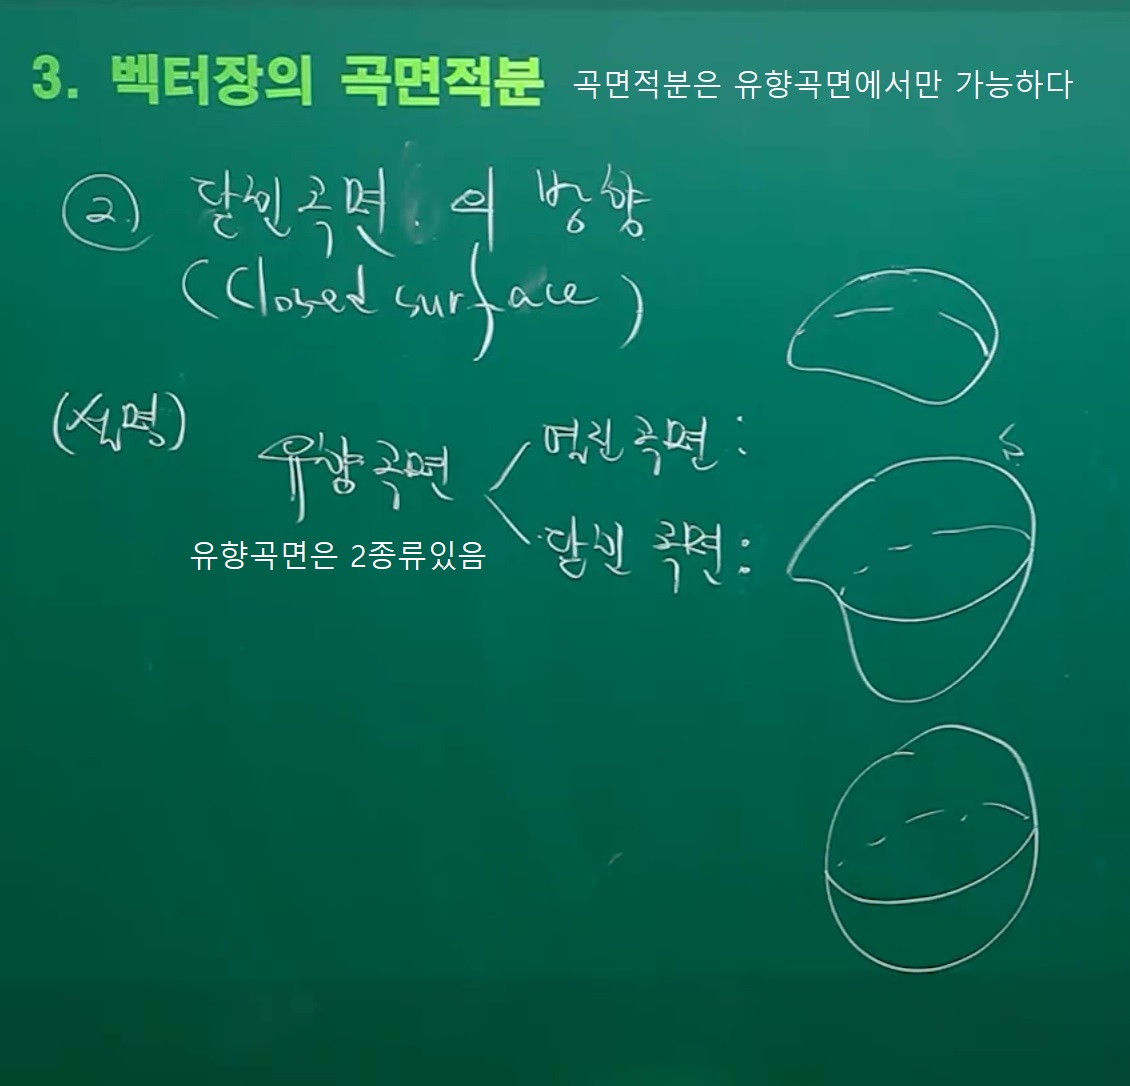 3. 벡터장의 곡면적분 곡면적분은 유향곡면에서만 가능하다
② 닫힌곡면의 방향
(Closed surface)
(설명)
유향곡면
열린곡면 :
S
닫힌곡면 :
유향곡면은 2종류있음